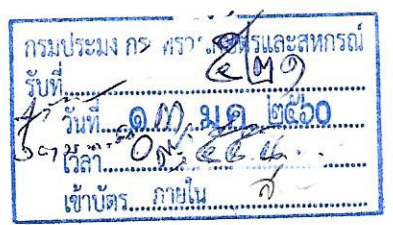 กรมประมง กระทรวงเกษตรและสหกรณ์
รับที่ ๕๒๑
วันที่ ๑๓ ม.ค. ๒๕๖๐
เวลา ๐๙.๕๕ น.
เข้าบัตร ภายใน